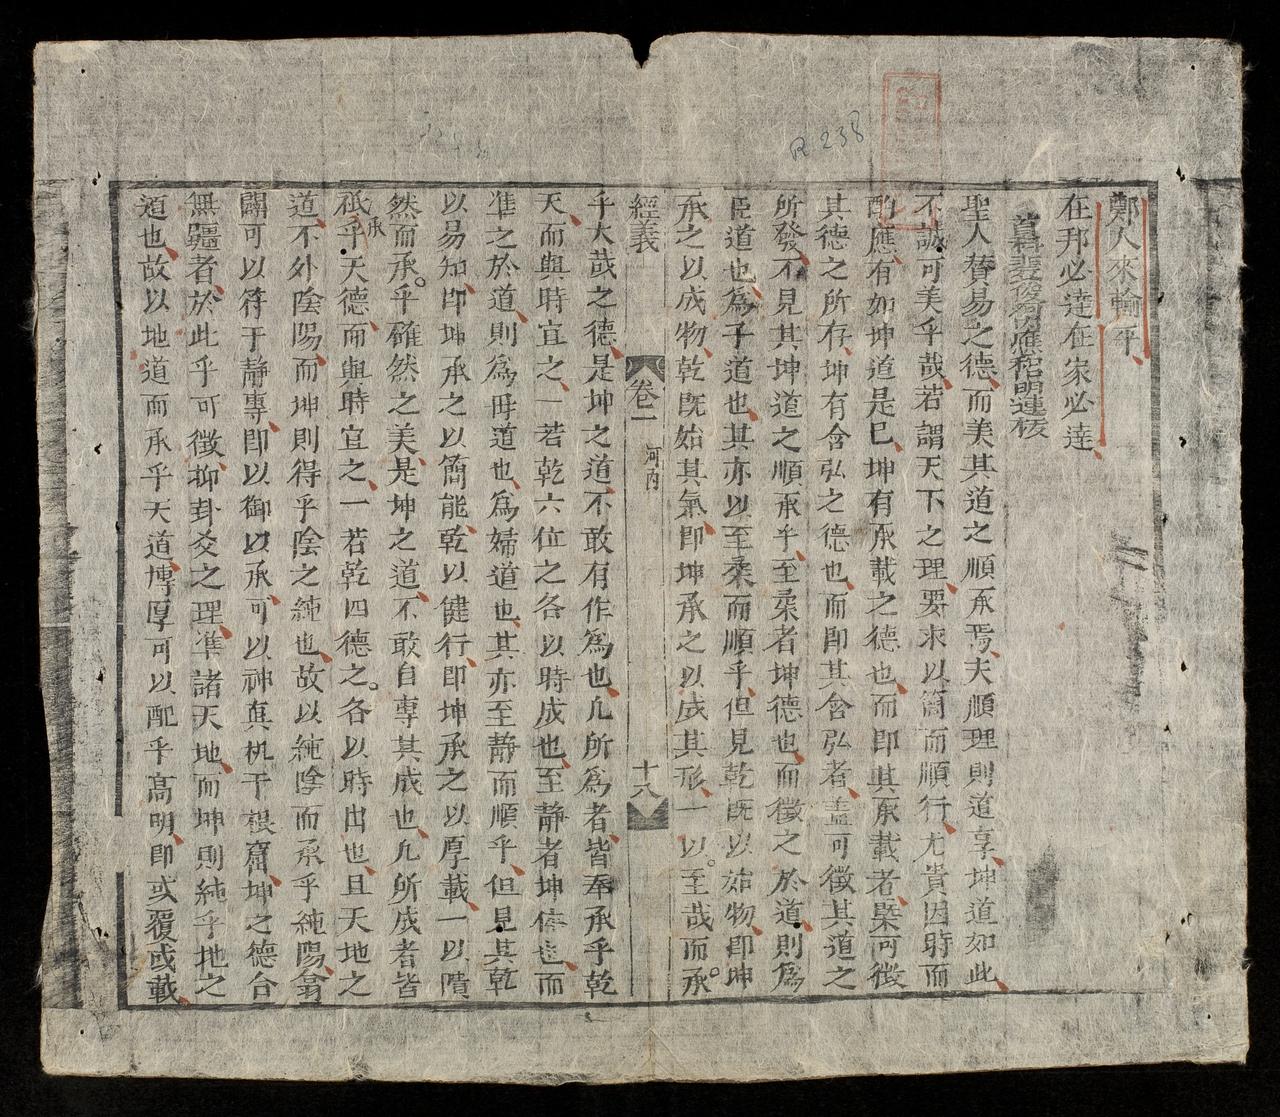 R 238
鄭人來輸平
在邦必達在家必達
聖人贊易之德而美其道之順承焉夫順理則道享坤道如此
不誠可美乎哉若謂天下之理要求以簡而順行尤貴因時而
酌應有如坤道是已坤有承載之德也而即其承載者槩可徵
其德之所存坤有含弘之德也而即其含弘者盖可徵其道之
所發不見其坤道之順承乎至柔者坤德也而徵之於道則爲
臣道也爲子道也其亦以至柔而順乎但見乾既以始物即坤
承之以成物乾既始其氣即坤承之以成其形一以至哉而承
經義
卷二
河內
十八
乎大哉之德是坤之道不敢有作爲也凡所爲者皆奉承乎乾
天而與時宜之一若乾六位之各以時成也至静者坤体也而
准之於道則爲母道也爲婦道也其亦至静而順乎但見其乾
以易知即坤承之以簡能乾以健行即坤承之以厚載一以隤
然而承乎確然之美是坤之道不敢自專其成也凡所成者皆
祇承乎天德而與時宜之一若乾四德之各以時出也且天地之
道不外陰陽而坤則得乎陰之純也故以純陰而承乎純陽翕
闢可以符于静專即以御以承可以神真机于橐龠坤之德合
無疆者於此乎可徵抑卦爻之理準諸天地而坤則純乎地之
道也故以地道而承乎天道博厚可以配乎高明即或覆或載